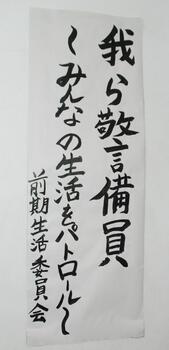 我ら警備員
~みんなの生活をパトロール~
前期生活委員会